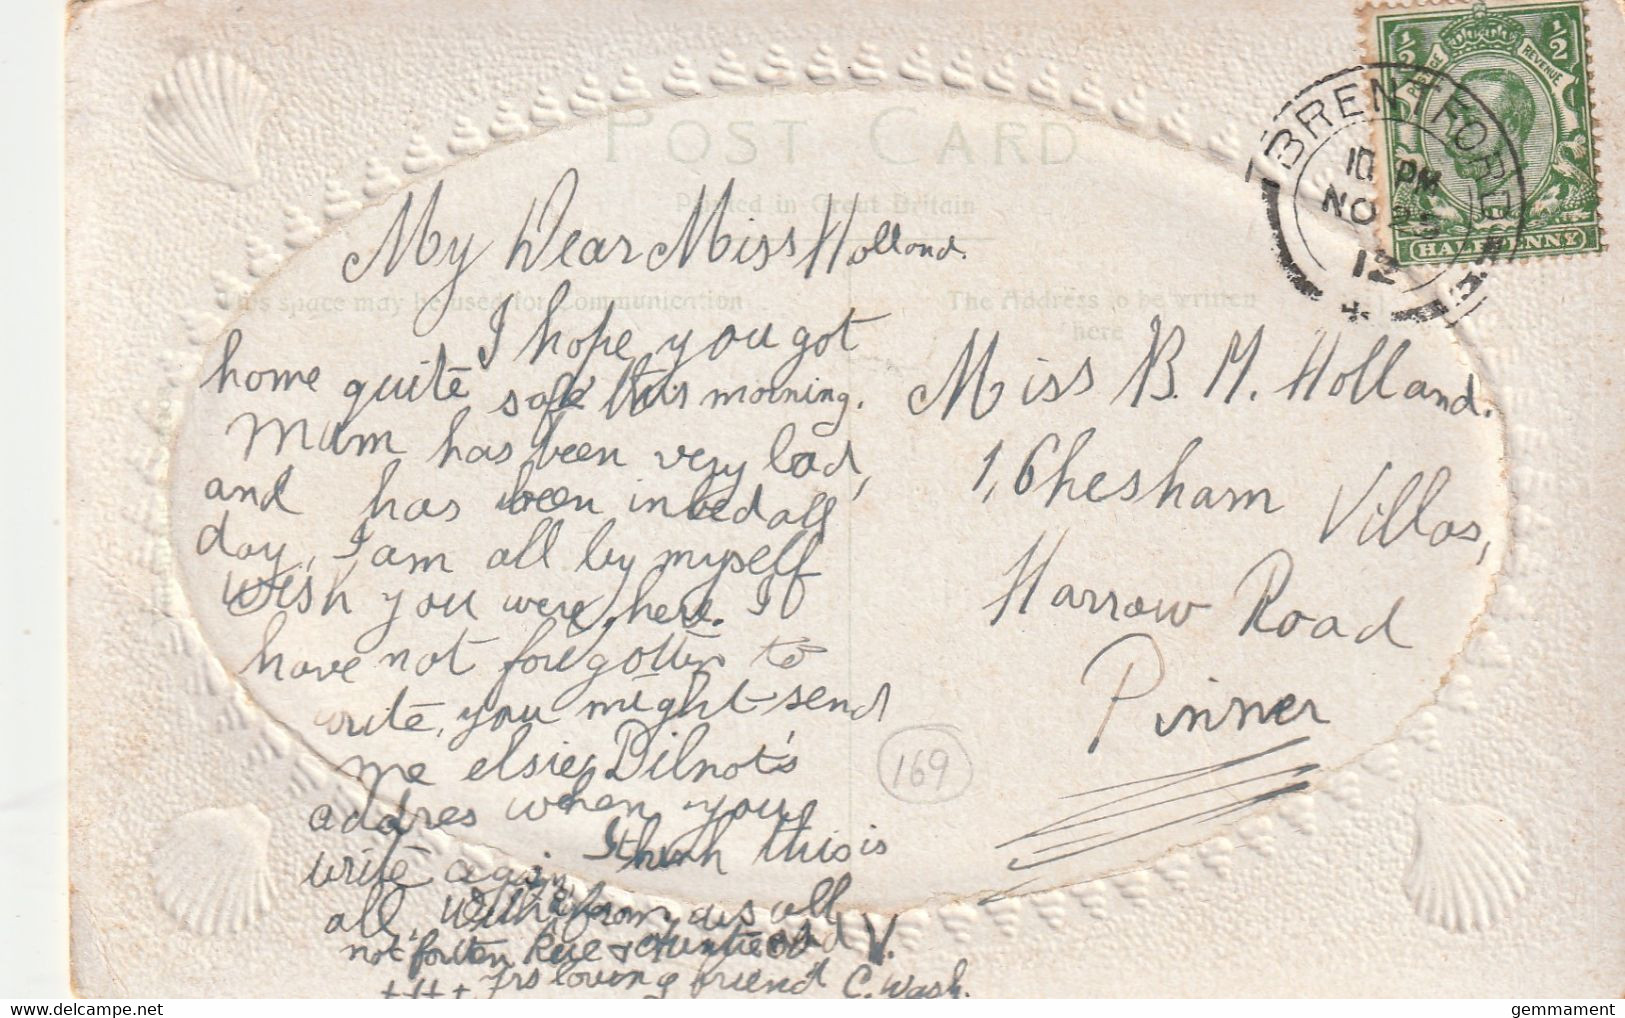 POST CARD
Printed in Great Britain
This space may be used for Communication
The Address to be written
here
½ ½
REVENUE
HALFPENNY
BRENTFORD
10 PM
NO
12
My Dear Miss Holland.
I hope you got
home quite safe this morning.
Mum has been very bad,
and has been in bed all
day, I am all by myself
wish you were here. I
have not foregotten to
write, you might send
me elsie Dilnot's
addres when you
write again I think this is
all, with from us all
not forten Rue & Auntie
+++ Yrs loving friend C. Wash.
Miss B. M. Holland.
1, Chesham Villas,
Harrow Road
Pinner
169
gemmament